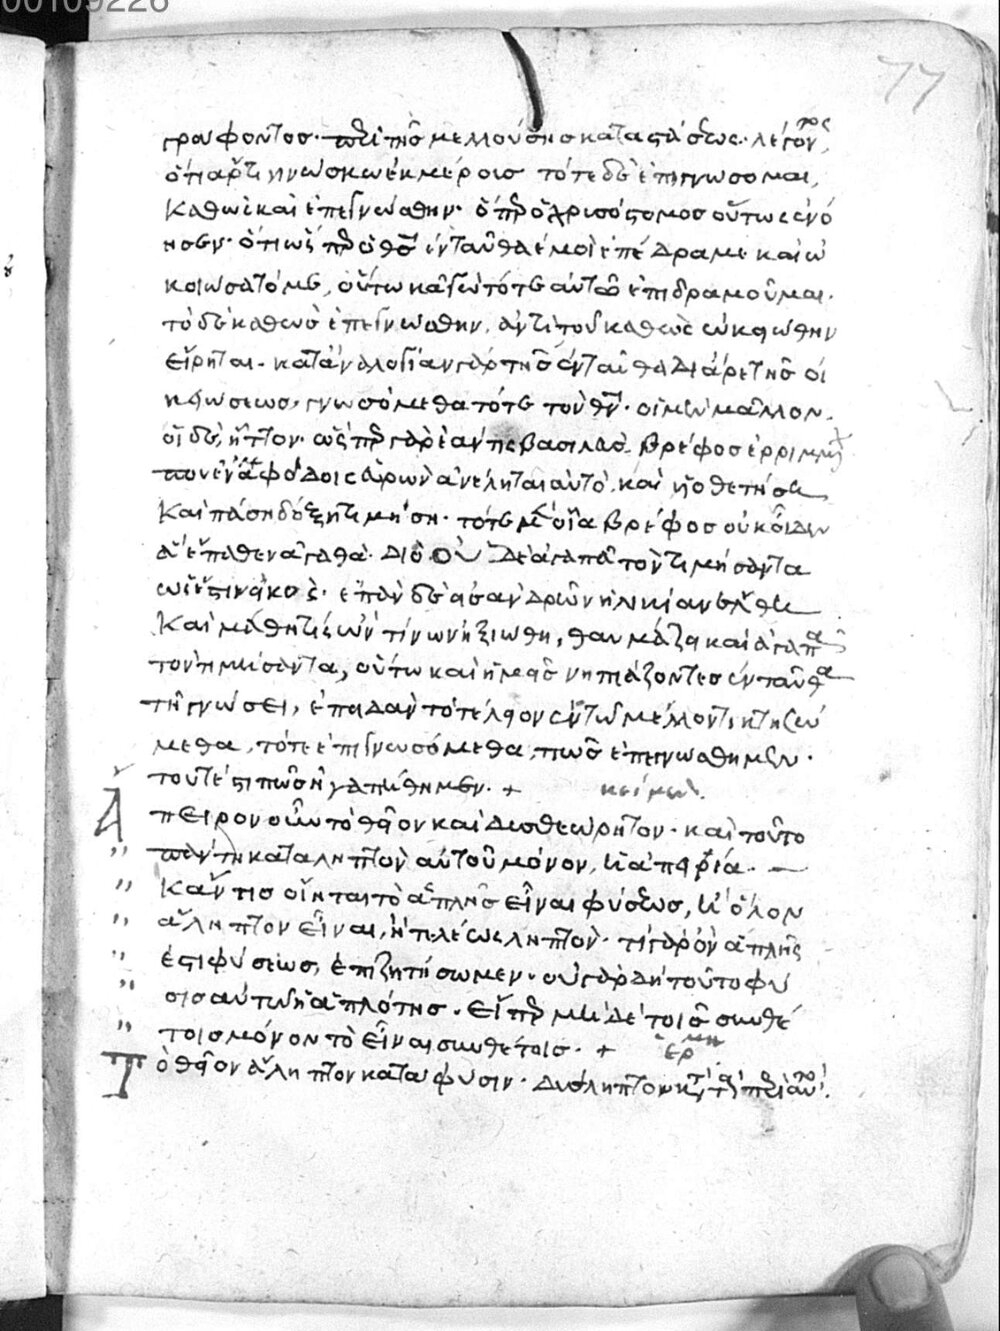 00109226
77
γράφοντος· περὶ τῆς μελλούσης καταστάσεως· λέγοντος,
ὅτι ἄρτι γινώσκω ἐκ μέρους τότε δὲ ἐπιγνώσομαι,
καθὼς καὶ ἐπεγνώσθην· ὅπερ ὁ χρυσόστομος οὕτως ἐνό
ησεν· ὅτι ὥσπερ ὁ θς ἐνταῦθα ἐμοὶ ἐπέδραμε καὶ ὠ
κειώσατό με, οὕτω κἀγὼ τότε αὐτῶ ἐπιδραμοῦμαι·
τὸ δὲ καθὼς ἐπεγνώσθην, ἀντὶ τοῦ καθὼς ὠκειώθην
εἴρηται· κατὰ ἀναλογίαν γὰρ τῆς ἐνταῦθα δι' ἀρετῆς οἰ
κειώσεως, γνωσόμεθα τότε τὸν θν· οἱ μὲν μᾶλλον·
οἱ δὲ, ἧττον· ὥσπερ γὰρ ἐάν τις βασιλεὺς βρέφος ἐρριμμέ
νον ἐν ἀμφόδοις εὑρὼν ἀνέληται αὐτὸ, καὶ υἱοθετήσει
καὶ πάσῃ δόξῃ τιμήσῃ· τότε μὲν οἷα βρέφος οὐκ οἶδεν
ἃ εὖ πέπονθεν ἀγαθά· διὸ οὐδὲ ἀγαπᾶ τὸν τιμήσαντα
ἐπὰν δὲ εἰς ἀνδρῶν ἡλικίαν ἔλθει
καὶ μάθῃ τίς ὢν τίνων ἠξιώθη, θαυμάζει καὶ ἀγαπᾶ
τὸν τιμήσαντα, οὕτω καὶ ἡμεῖς νηπιάζοντες ἐνταῦθα
τῆ γνώσει, ἐπειδὰν τὸ τέλειον ἐν τῶ μέλλοντι κτησώ
μεθα, τότε ἐπιγνωσόμεθα, πῶς ἐπεγνώσθημεν·
τουτέστι πῶς ἠγαπήθημεν· +
κείμεν
Ἄπειρον οὖν τὸ θεῖον καὶ δυσθεώρητον· καὶ τοῦτο
πάντη καταληπτὸν αὐτοῦ μόνον, ἡ ἀπειρία·
κἄν τις οἴηται τὸ ἁπλῆς εἶναι φύσεως, ἢ ὅλον
ἄληπτον εἶναι, ἢ τελέως ληπτόν· τί γὰρ ὂν ἁπλῆς
ἐστι φύσεως, ἐπιζητήσωμεν· οὐ γὰρ δὴ τοῦτο φύ
σις αὐτῶ ἡ ἁπλότης· εἴπερ μηδὲ τοῖς συνθέ
τοις μόνον τὸ εἶναι συνθέτοις· +
ἑρμη
Τὸ θεῖον ἄληπτον κατὰ φύσιν· δύσληπτον κατὰ τὰ περὶ αὐτό·